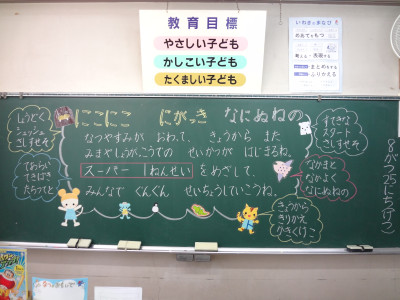 教育目標
やさしい子ども
かしこい子ども
たくましい子ども
にこにこ にがっき なにぬねの
なつやすみが おわって、きょうから また
みまやしょうがっこうでの せいかつが はじまるね。
スーパー 1ねんせい をめざして、
みんなで ぐんぐん せいちょうしていこうね。
しょうどく
シュッシュ
さしすせそ
てあらい
てきぱき
たちつてと
すてきな
スタート
さしすせそ
なかまと
なかよく
なにぬねの
きょうから
きりかえ
かきくけこ
8がつ25にち